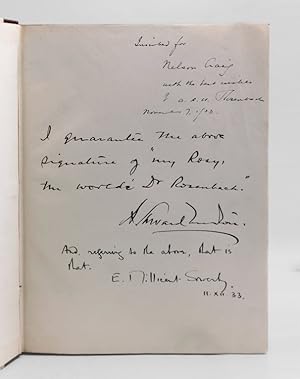 Inscribed for
Nelson Craig
with the best wishes
of A. S. W. Rosenbach
November 7, 19
I guarantee the above
signature of "my Rosy,
the world's Dr Rosenbach."
A. Edward Newton.
And, referring to the above, that is
that.
E. Millicent Sowerby
11. XII. 33.